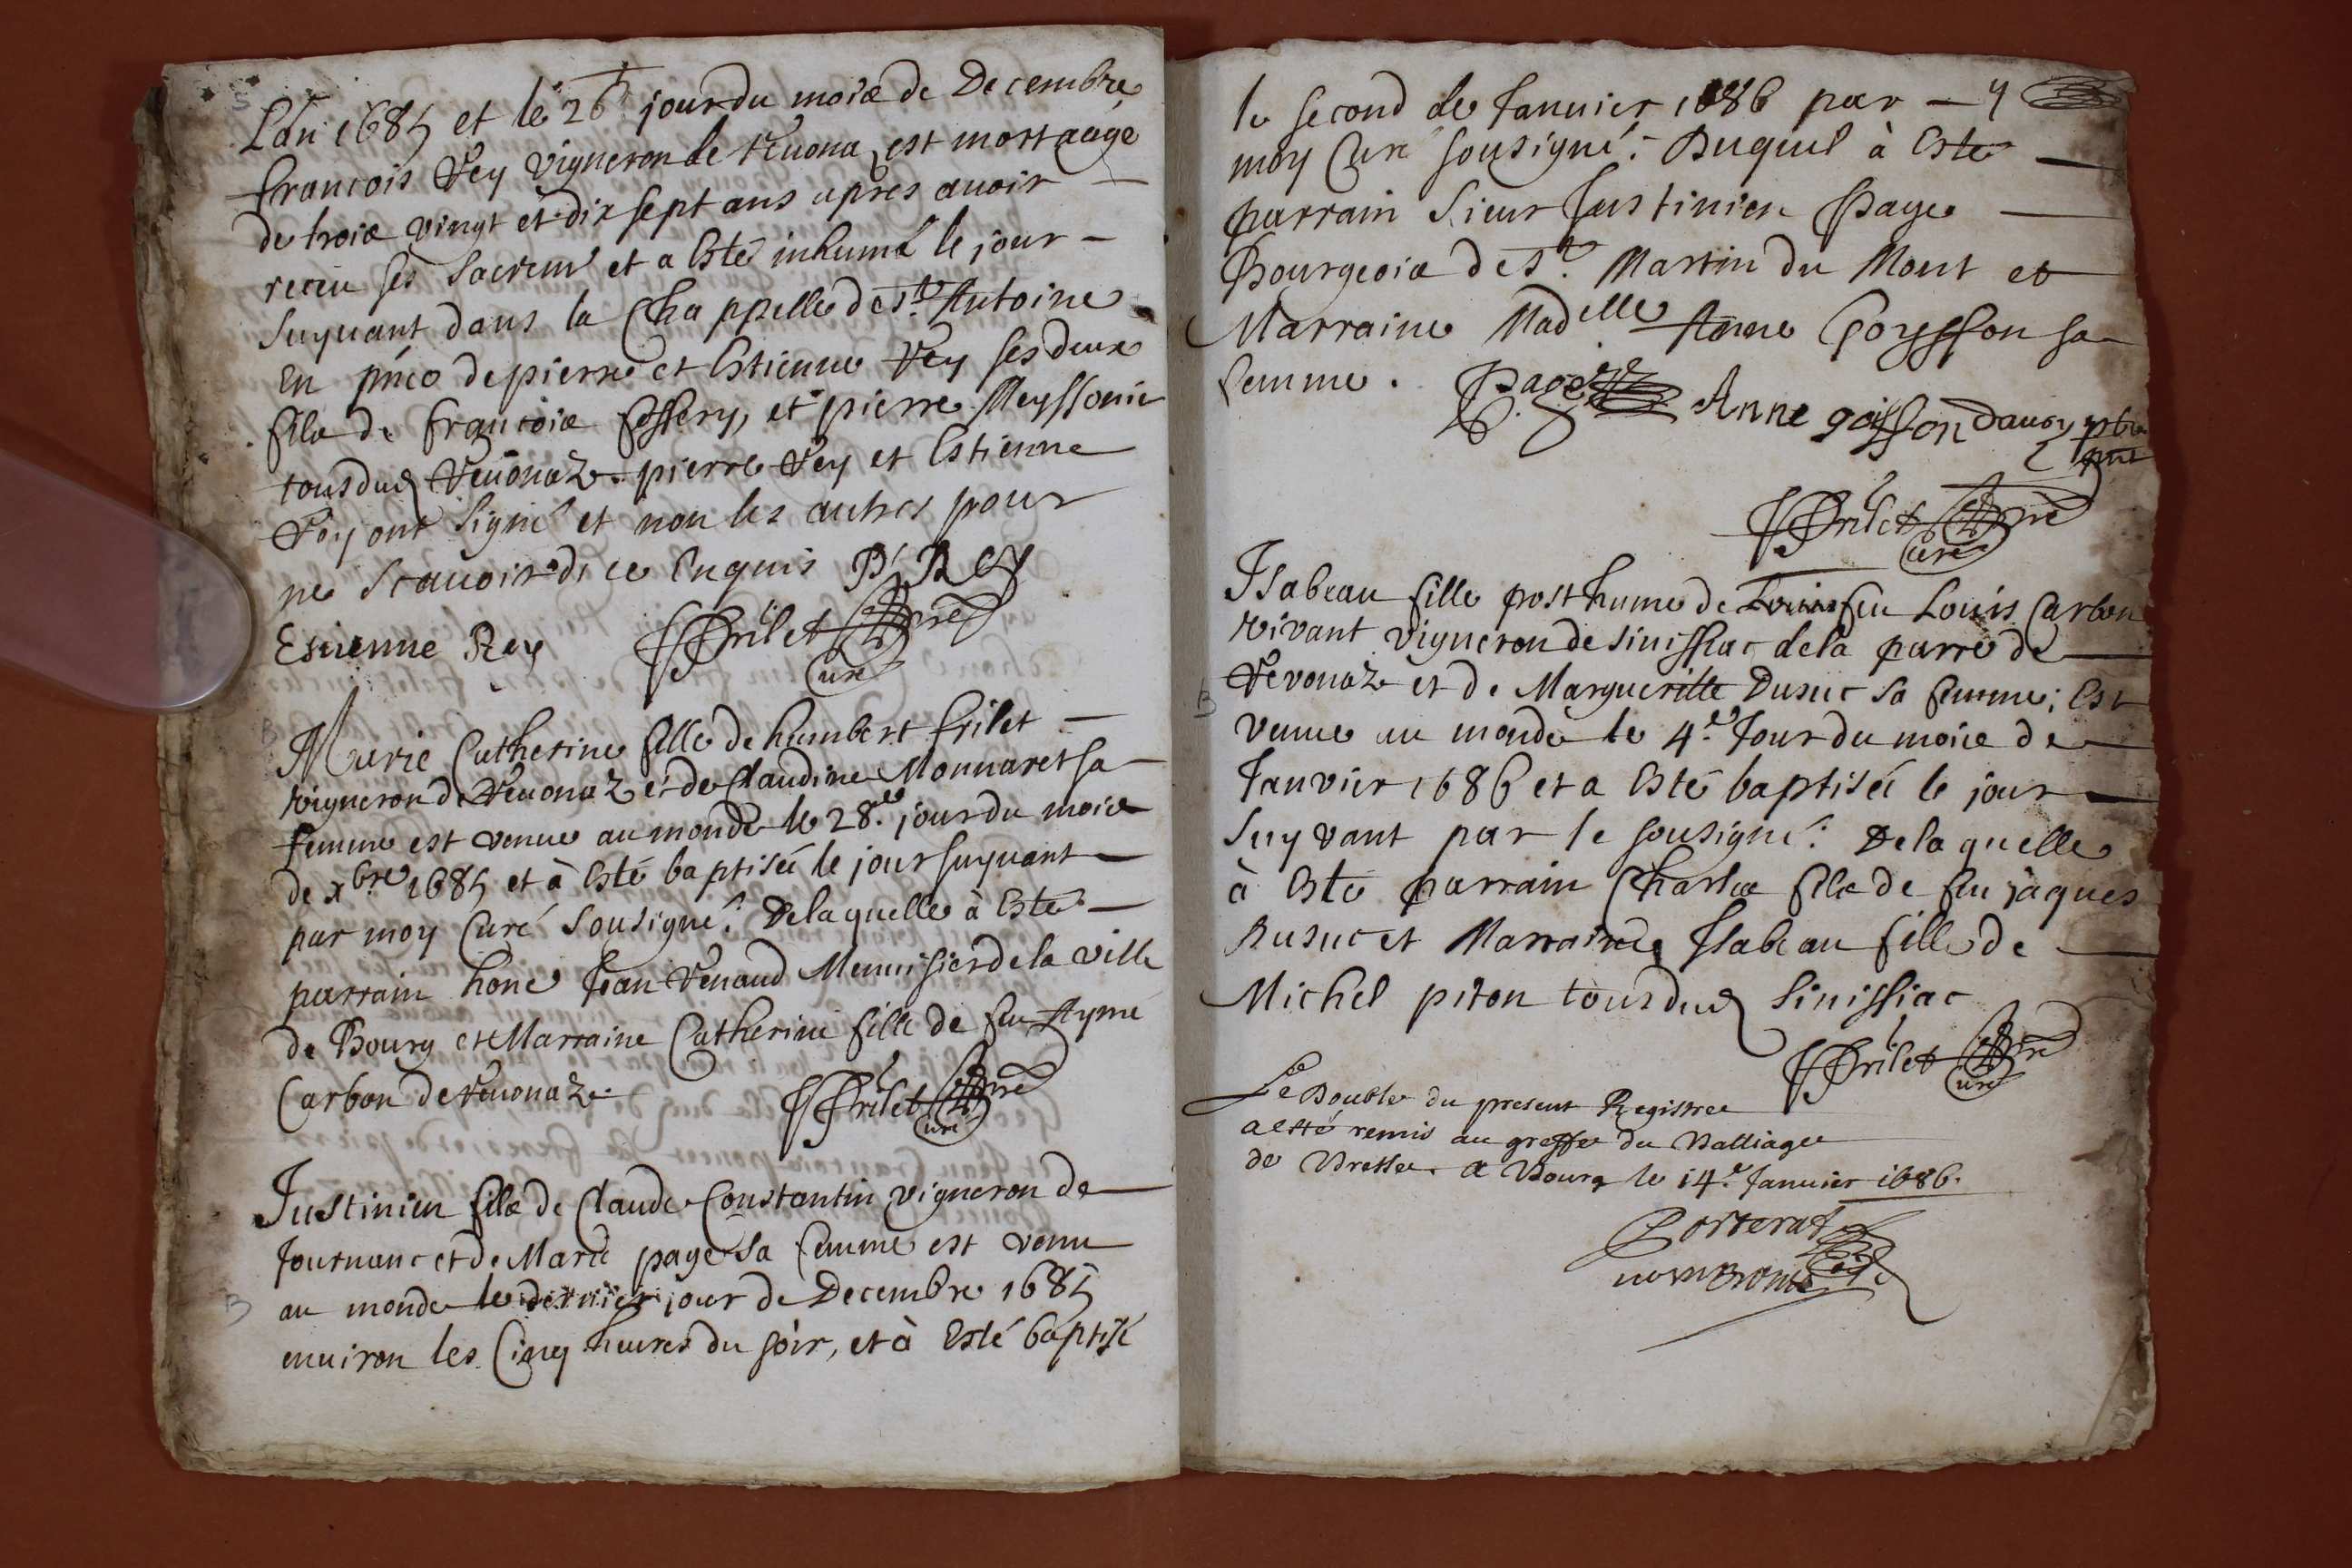 S
L'an 1685 et le 26e jour du mois de Decembre
francois Rey vigneron de Reuona est mort aage
de trois vingt et dix sept ans apres auoir
receu ses Sacremts et a Esté inhumé le jour
suyuant dans la Chappelle de St. Antoine
En pnce de pierre et Estienne Rey ses deux
fils de francois , et pierre Meyssonie
tous dud Reuonaz. pierre Rey et Estienne
Rey ont signé et non les autres pour
ne Scauoir de ce Enquis P. Rey
Estienne Rey Frilet pre
Curé
B
Marie Catherine fille de humbert frilet
vigneron de Reuonaz et de Claudine Monnaret sa
femme est venue au monde le 28.e jour du mois
de xbre 1685 et à Esté baptisée le jour suyuant
par moy Curé Sousigné: De laquelle à Esté
parrain hone Jean Renaud Menuisier de la ville
de Bourg et Marraine Catherine fille de feu Aymé
Carbon de Reuonaz. Frilet pre
Curé
Justinien fils de Claude Constantin vigneron de
Journanc et de Marie page sa femme est venu
B
au monde le dernier jour de Decembre 1685
enuiron les Cinq heures du soir, et à Esté baptisé
le second de Januier 1686 par
moy Curé sousigné: Duquel à Esté
parrain Sieur Justinien Page
Bourgeois de St. Martin du Mont et
Marraine Madelle Anne Goysson sa
femme. Page Anne goisson
Frilet pre
Curé
Isabeau fille posthume de feu Louis Carbon
vivant vigneron de Sinissiac de la parre de
B
Revonaz et de Margueritte Dusuc sa femme; Est
venue au monde le 4.e Jour du mois de
Janvier 1686 et a Esté baptisée le jour
suyvant par le sousigné: De laquelle
à Esté parrain Charles fils de feu jaques
Dusuc et Marraine Isabeau fille de
Michel piton tous dud Sinissiac
Frilet pre
Curé
Le Double du present Registre
a esté remis au greffe du Balliage
de Bresse. a Bourg le 14.e Januier 1686.